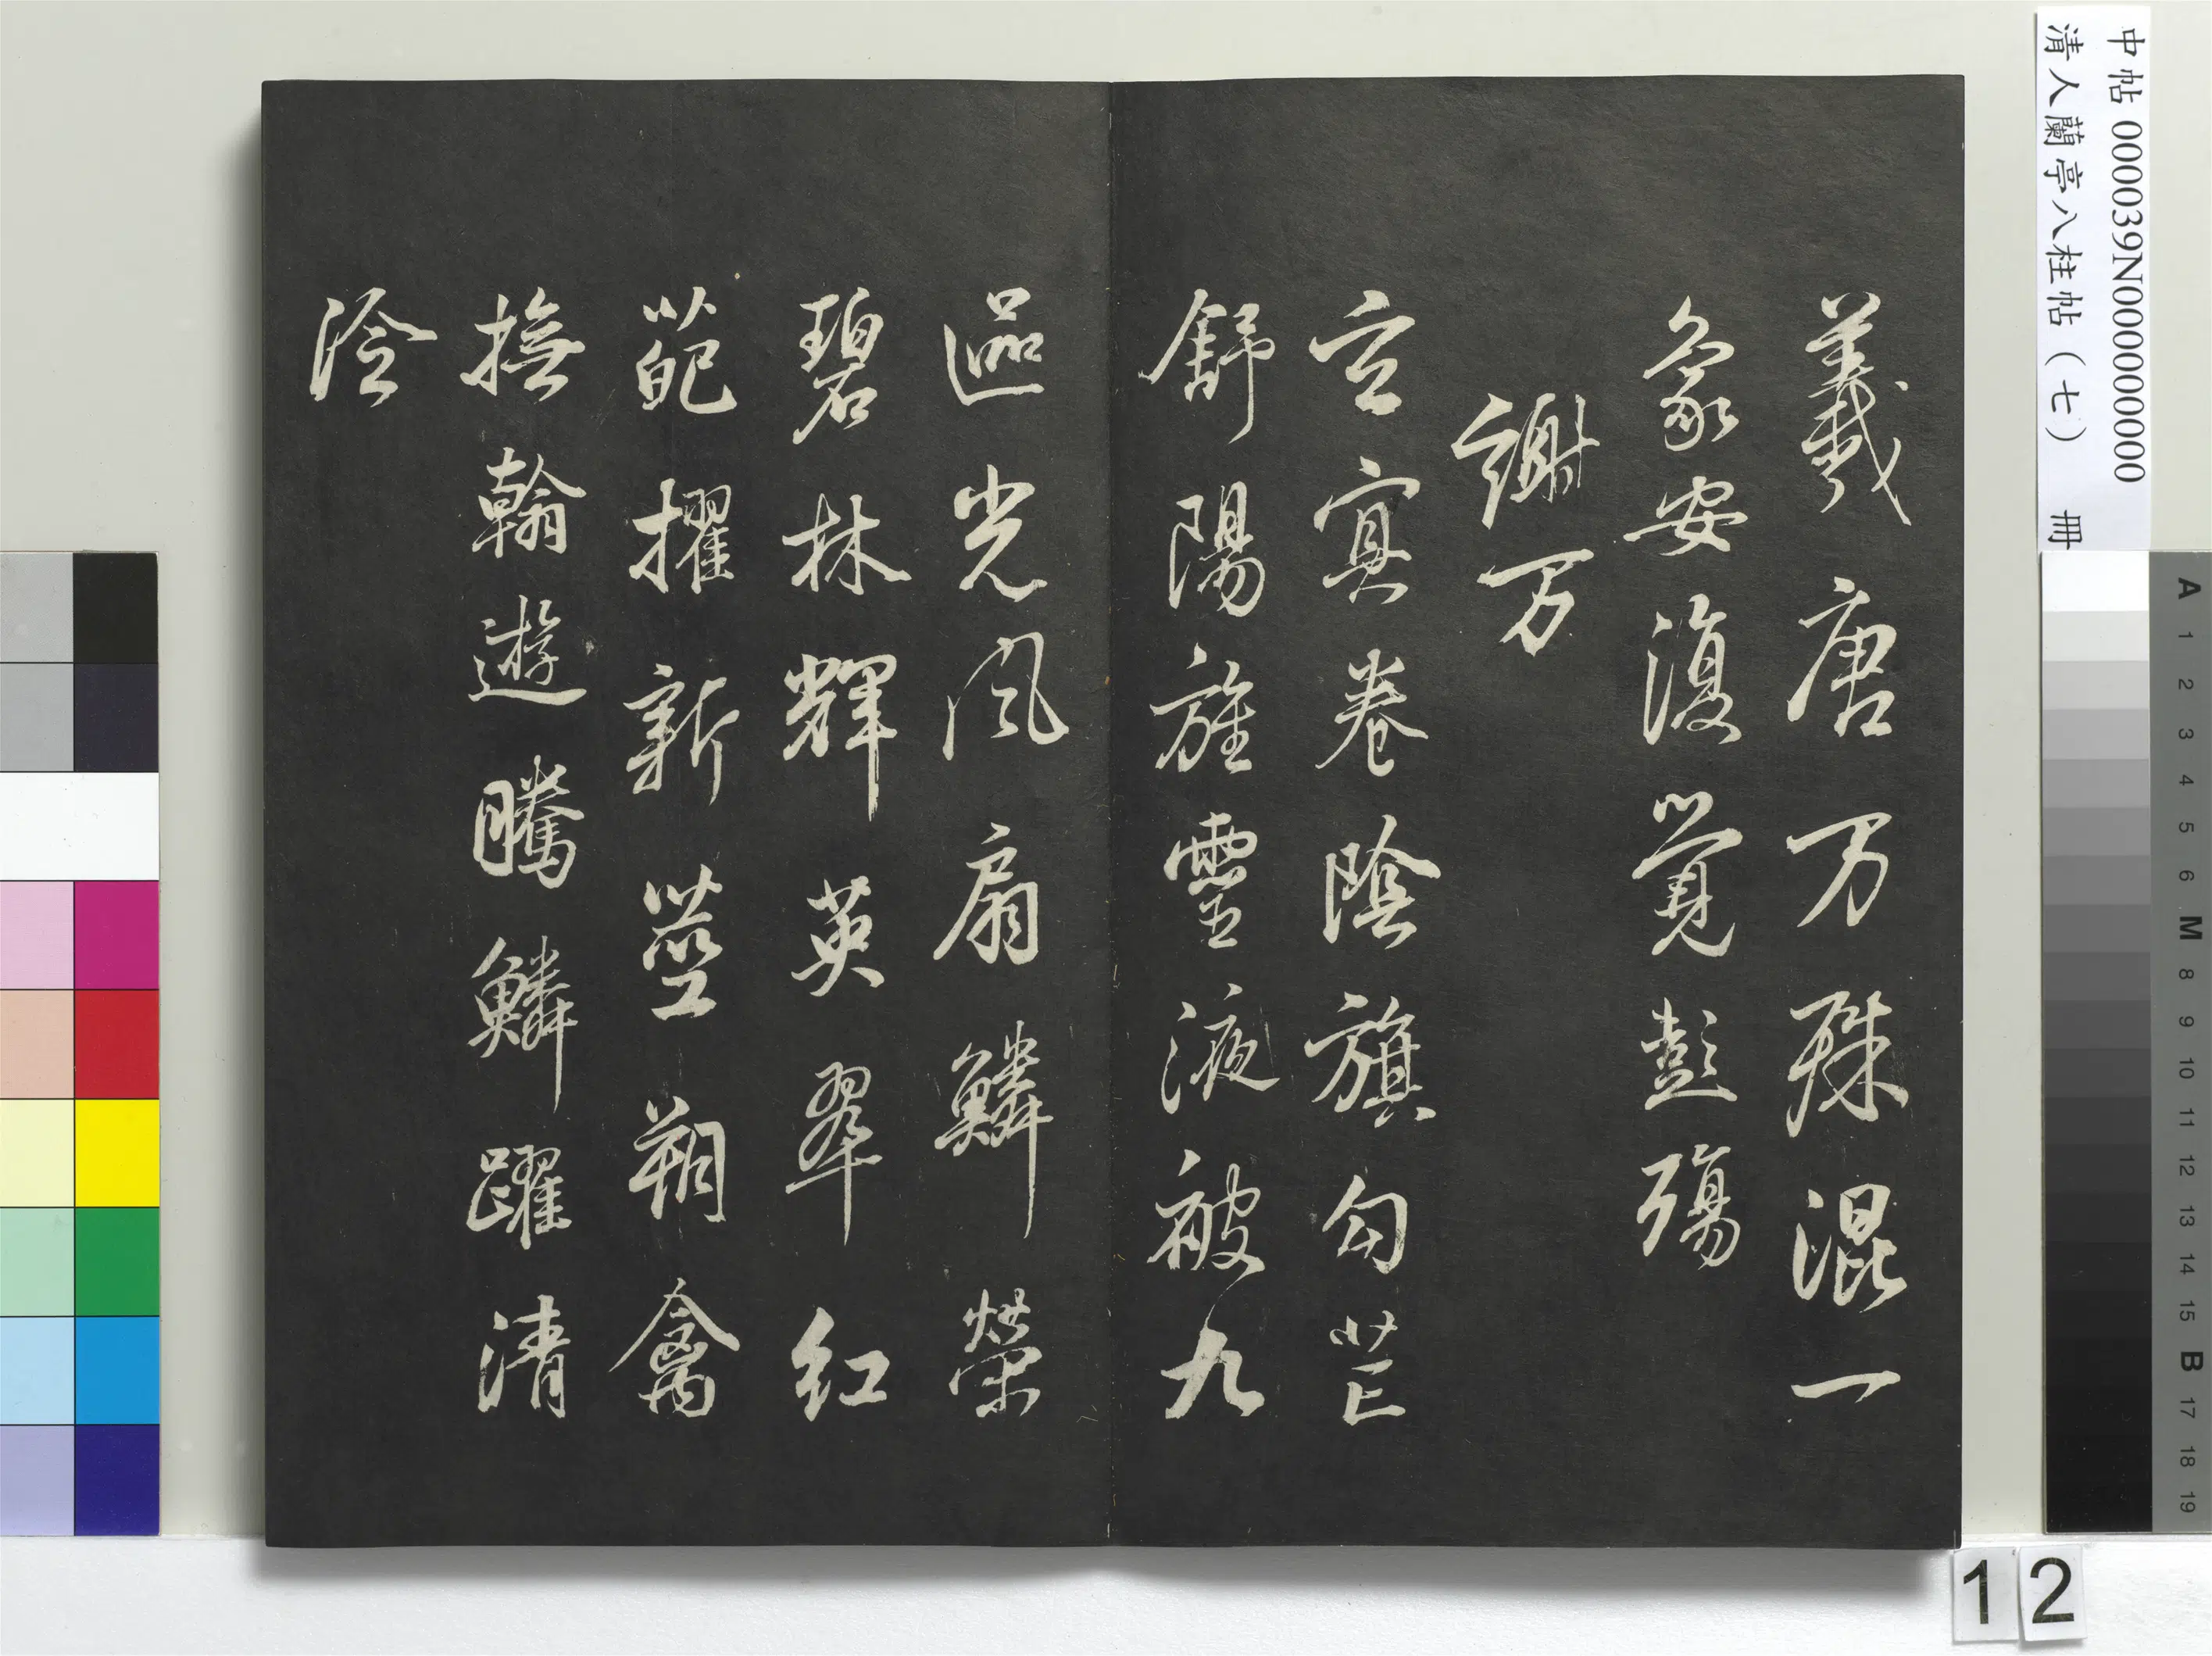 中帖 000039N000000000
清人蘭亭八柱帖（七） 冊
羲唐万殊混一
象安復覺彭殤
謝万
玄冥卷陰旗勾芒
舒陽旌靈液被九
區光風扇鱗榮
碧林輝英翠紅
葩擢新莖翔禽
撫翰遊騰鱗躍清
泠
A 1 2 3 4 5 6 M 8 9 10 11 12 13 14 15 B 17 18 19
12